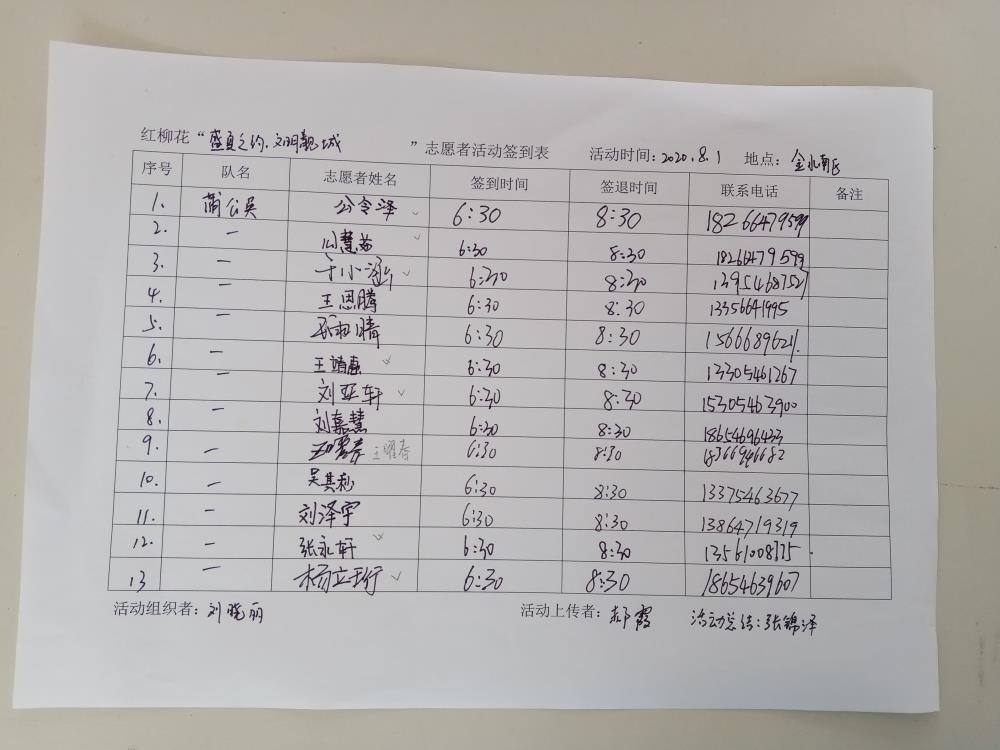 红柳花“盛夏之约.文明靓城”志愿者活动签到表 活动时间:2020.8.1 地点:金水南区
序号 队名 志愿者姓名 签到时间 签退时间 联系电话 备注
1. 蒲公英 公令泽 6:30 8:30 182664795
2. — 慧 6:30 8:30 18266479599
3. — 于小涵 6:30 8:30 1395468752
4. — 王思腾 6:30 8:30 13356641995
5. — 晴 6:30 8:30 1566689621
6. — 王靖惠 6:30 8:30 13305461267
7. — 刘亚轩 6:30 8:30 15305463900
8. — 刘嘉慧 6:30 8:30 18654696433
9. — 王曜春 6:30 8:30 18366946682
10. — 吴其彪 6:30 8:30 13375463677
11. — 刘泽宇 6:30 8:30 13864719319
12. — 张永轩 6:30 8:30 13561008375
13 — 杨立珩 6:30 8:30 18654639607
活动组织者:刘晓丽 活动上传者:郝霞 活动总结:张锦泽